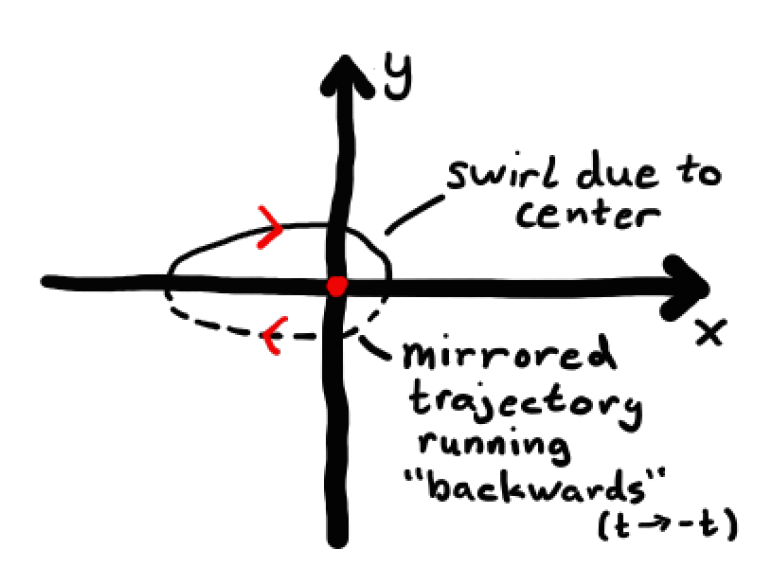 y
swirl due to
center
x
mirrored
trajectory
running
"backwards"
(t→-t)